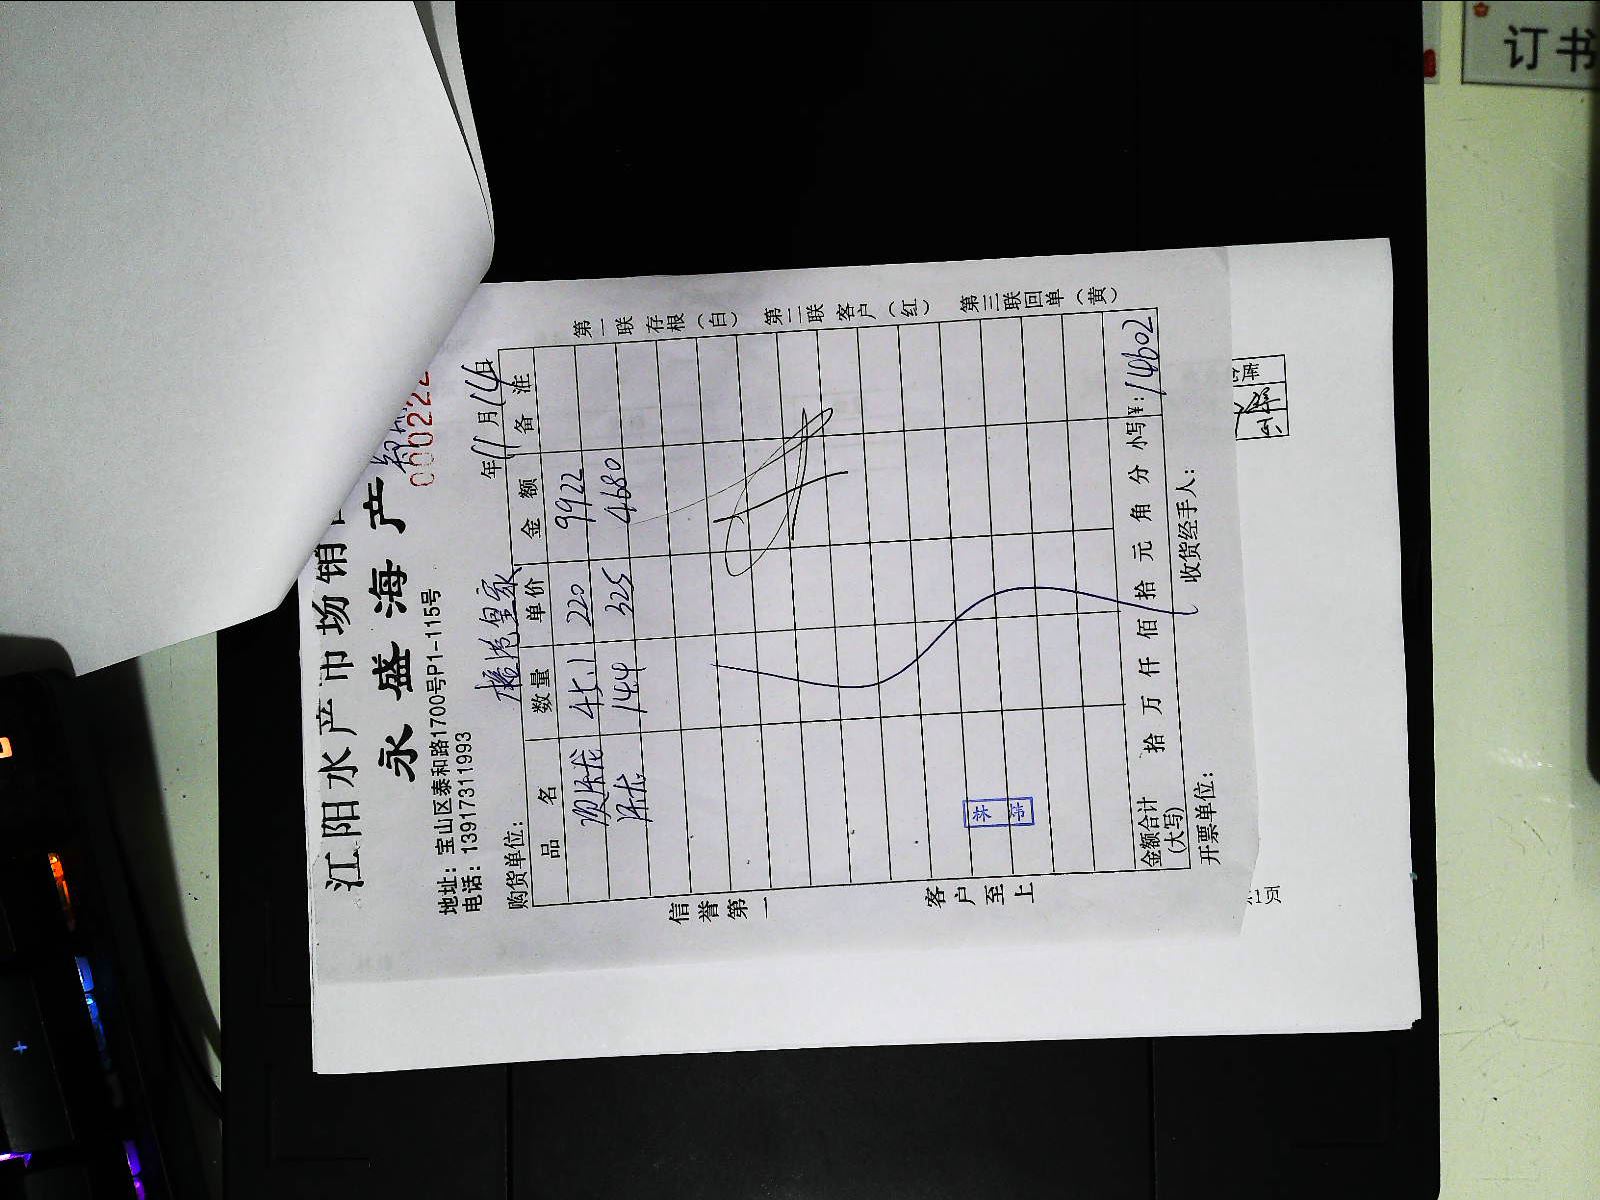 江阳水产市场销
永盛海产
000222
地址：宝山区泰和路1700号P1-115号
电话：13917311993
购货单位： 皇家 年11月14日
品名 数量 单价 金额 备注
45.1 220 9922
144 325 4680
金额合计(大写) 拾 万 仟 佰 拾 元 角 分 小写¥：14602
开票单位： 收货经手人：
信誉第一
客户至上
第一联存根（白）
第二联客户（红）
第三联回单（黄）
订书